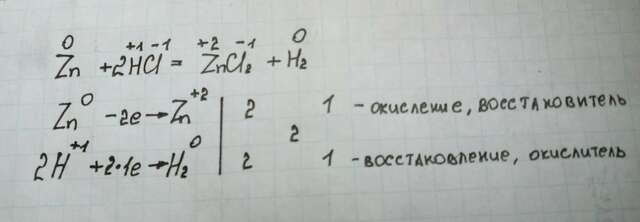 0 +1 -1 +2 -1 0
Zn + 2HCl = ZnCl₂ + H₂
Zn⁰ -2e → Zn⁺² | 2 1 - окисление, восстановитель
2
2H⁺¹ + 2·1e → H₂⁰ | 2 1 - восстановление, окислитель